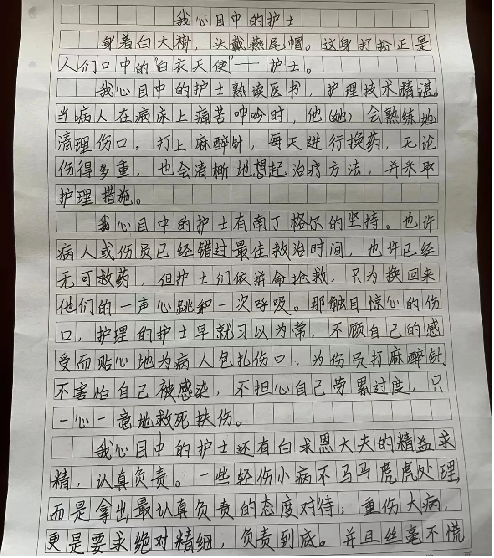 我心目中的护士
身着白大褂,头戴燕尾帽。这身打扮正是
人们口中的"白衣天使"——护士。
我心目中的护士熟读医书,护理技术精湛。
当病人在病床上痛苦呻吟时,他(她)会熟练地
清理伤口,打上麻醉针,每天进行换药,无论
伤得多重,也会清晰地想起治疗方法,并采取
护理措施。
我心目中的护士有南丁格尔的坚持。也许
病人或伤员已经错过最佳救治时间,也许已经
无可救药,但护士们依拼命抢救,只为换回来
他们的一声心跳和一次呼吸。那触目惊心的伤
口,护理的护士早就习以为常,不顾自己的感
受而贴心地为病人包扎伤口,为伤员打麻醉针
不害怕自己被感染,不担心自己劳累过度,只
一心一意地救死扶伤。
我心目中的护士还有白求恩大夫的精益求
精,认真负责。一些轻伤小病不马马虎虎处理
而是拿出最认真负责的态度对待;重伤大病,
更是要求绝对精细,负责到底。并且丝毫不慌